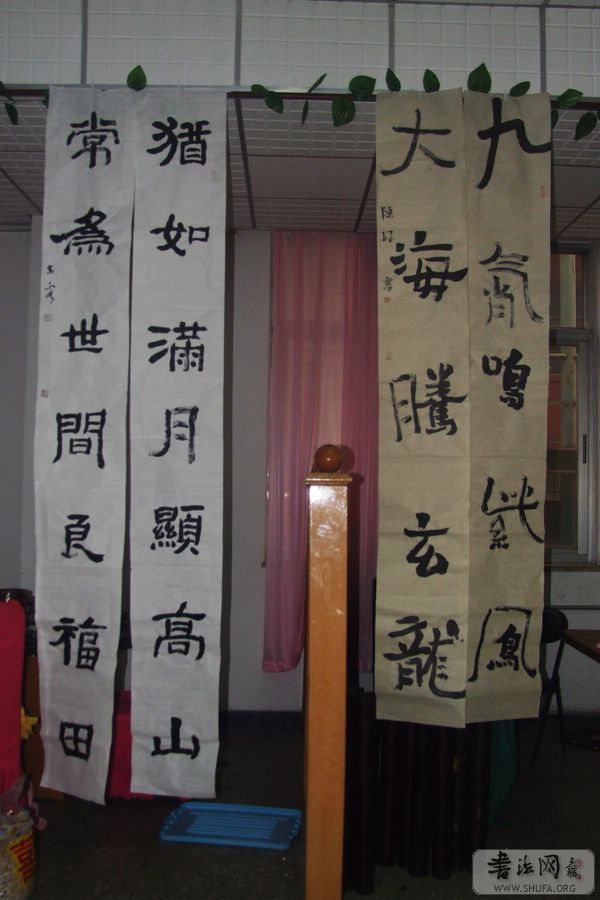 九霄鳴紫鳳
大海騰玄龍
猶如滿月顯高山
常為世間良福田
喜
書法网
WWW.SHUFA.ORG